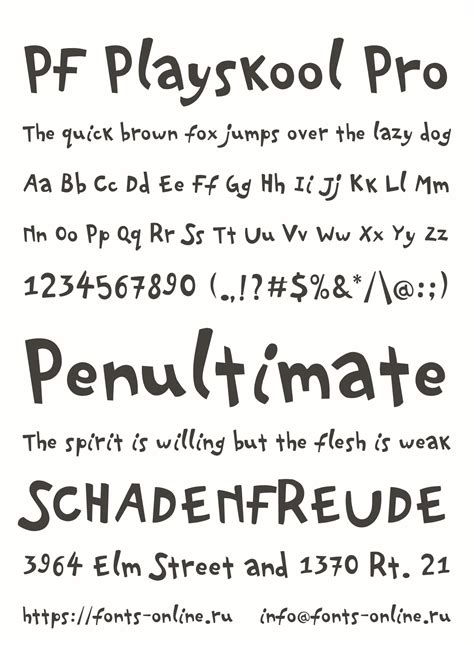 PF Playskool Pro
The quick brown fox jumps over the lazy dog
Aa Bb Cc Dd Ee Ff Gg Hh Ii Jj Kk Ll Mm
Nn Oo Pp Qq Rr Ss Tt Uu Vv Ww Xx Yy Zz
1234567890 (.,!?#$%&*/\@:;)
Penultimate
The spirit is willing but the flesh is weak
SCHADENFREUDE
3964 Elm Street and 1370 Rt. 21
https://fonts-online.ru info@fonts-online.ru